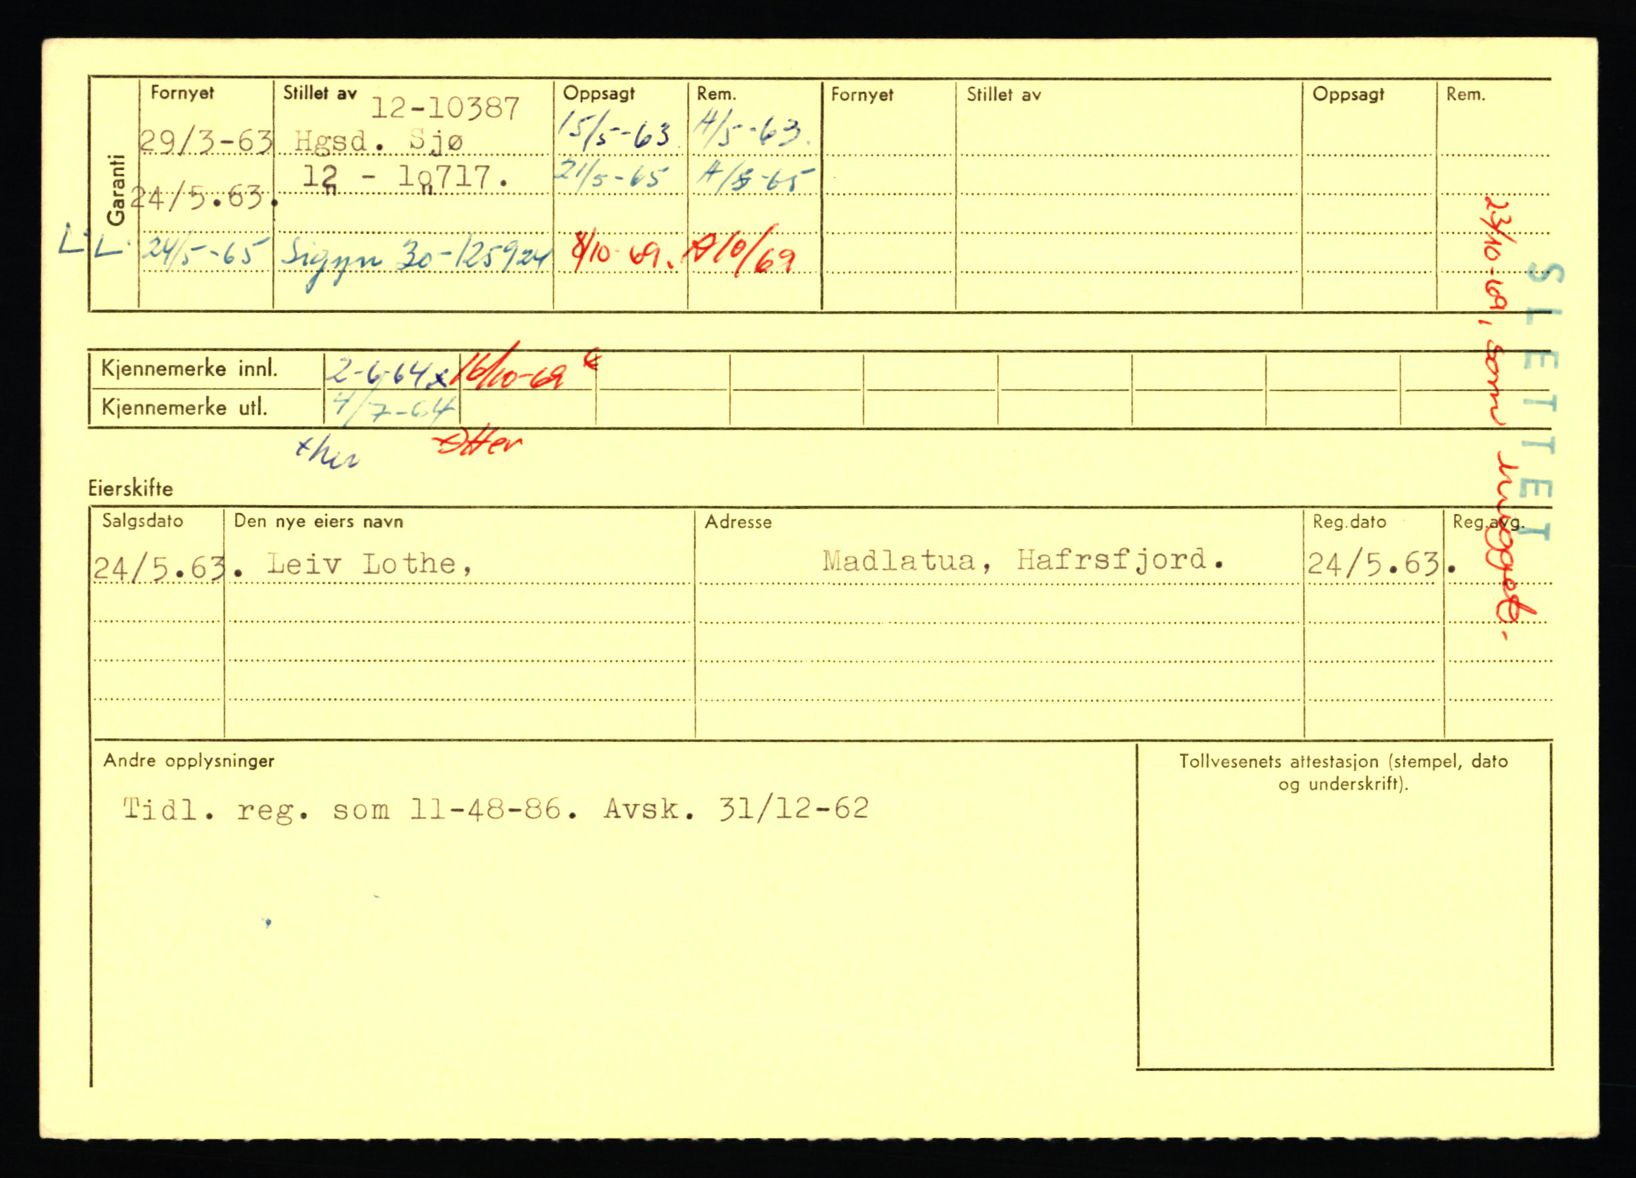 Garanti
Fornyet Stillet av Oppsagt Rem. Fornyet Stillet av Oppsagt Rem.
12-10387
29/3-63 Hgsd. Sjø 15/5-63 A/5-63.
12 - 10717. 21/5-65 A/5-65
24/5.63.
L L 24/5-65 Sigyn 30-125924 8/10-69. A10/69
Kjennemerke innl. 2-6-64 x 16/10-69 x
Kjennemerke utl. 7/7-64
x her x Etter
Eierskifte
Salgsdato Den nye eiers navn Adresse Reg.dato Reg.avg.
24/5.63. Leiv Lothe, Madlatua, Hafrsfjord. 24/5.63.
Andre opplysninger
Tidl. reg. som 11-48-86. Avsk. 31/12-62
Tollvesenets attestasjon (stempel, dato
og underskrift).
SLETTET
23/10-69, som